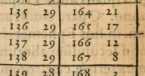 135 29 164 21
136 29 165 17
137 29 166 12
138 29 167 8
139 28 168